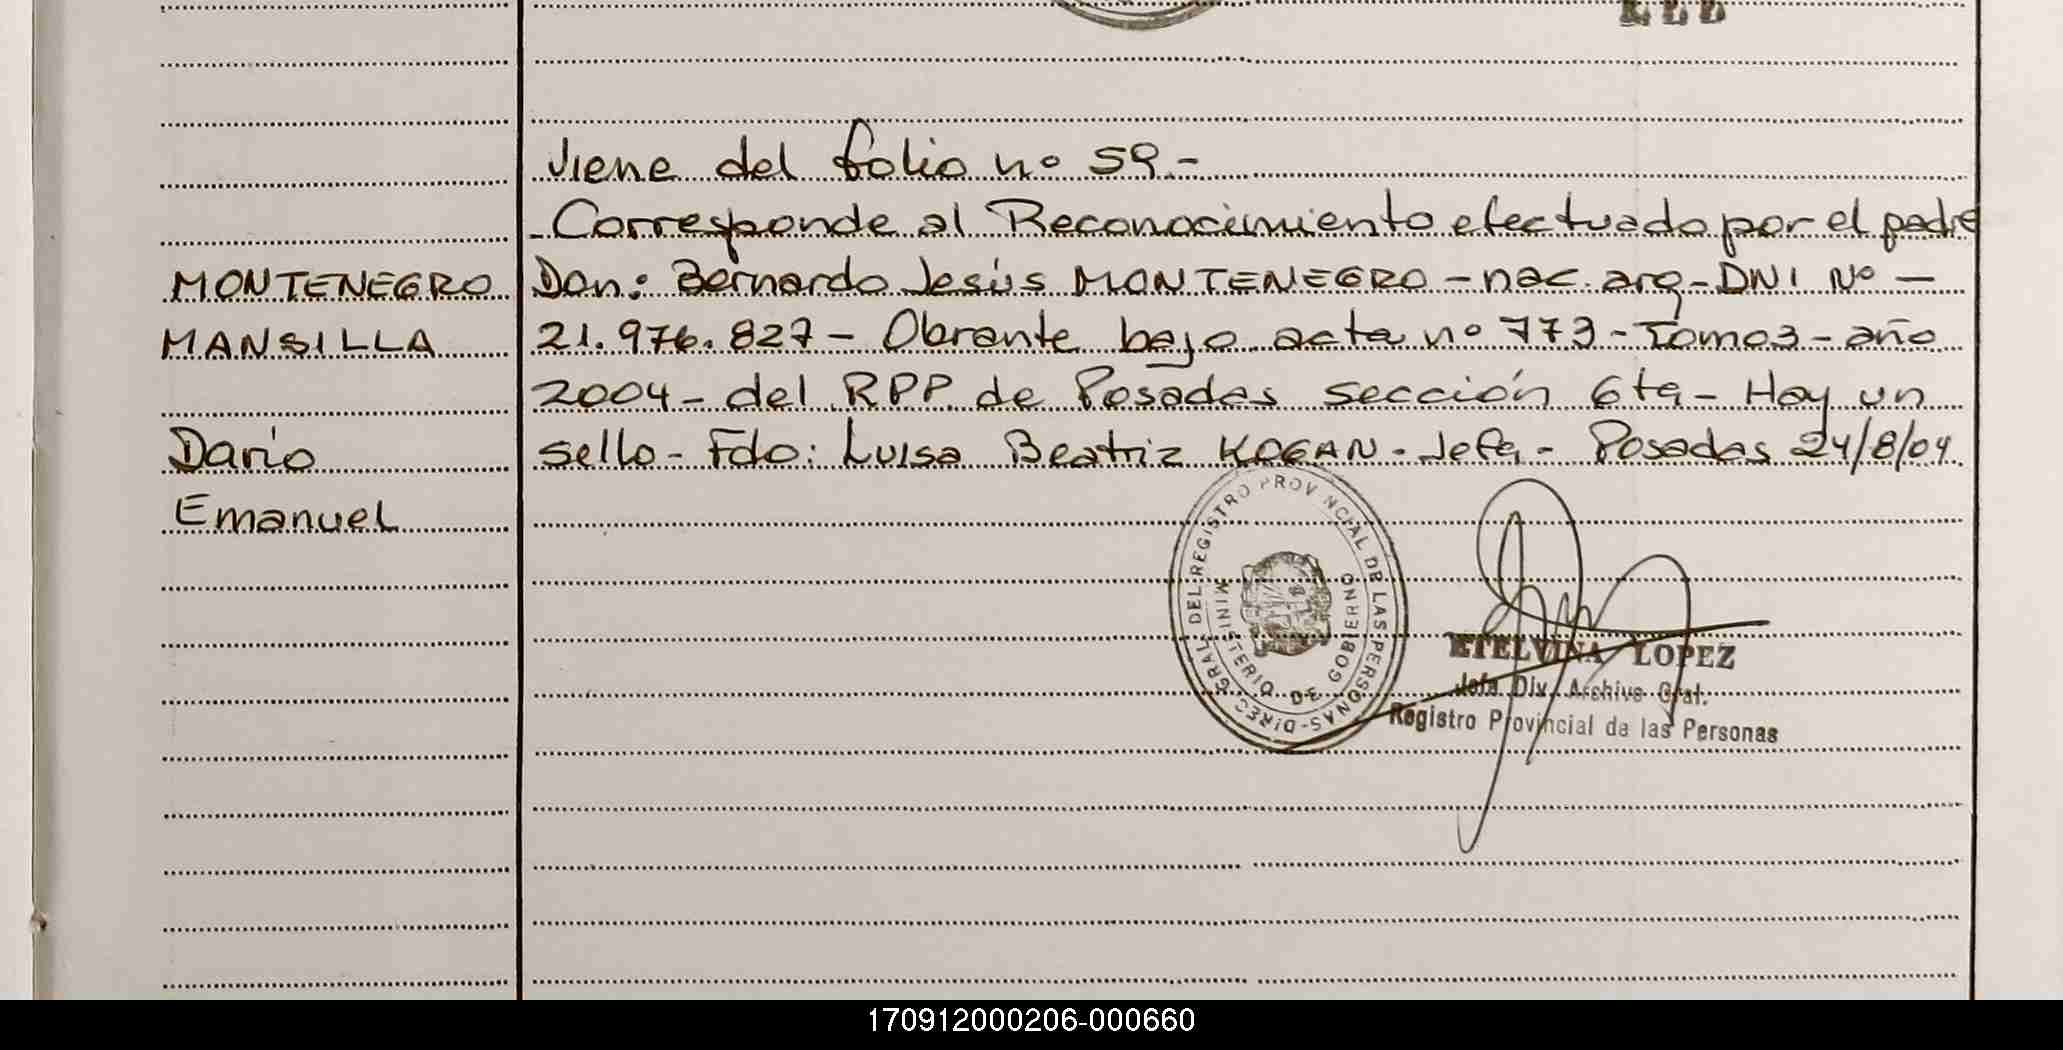 Viene del folio nº 59.-
- Corresponde al Reconocimiento efectuado por el padre
MONTENEGRO
Don: Bernardo Jesús MONTENEGRO - nac. arg - DNI Nº -
MANSILLA
21.976.827 - Obrante bajo acta nº 773 - Tomo 3 - año
2004 - del RPP. de Posadas sección 6ta - Hay un
Darío
sello - Fdo: Luisa Beatriz KOGAN - Jefa - Posadas 24/8/04.
Emanuel
DIREC. GRAL. DEL REGISTRO PROVINCIAL DE LAS PERSONAS
MINISTERIO DE GOBIERNO
ETELVINA LOPEZ
Jefa Div. Archivo Gral.
Registro Provincial de las Personas
170912000206-000660